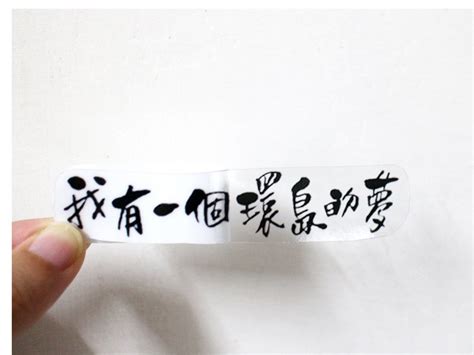 我有一個環島的夢